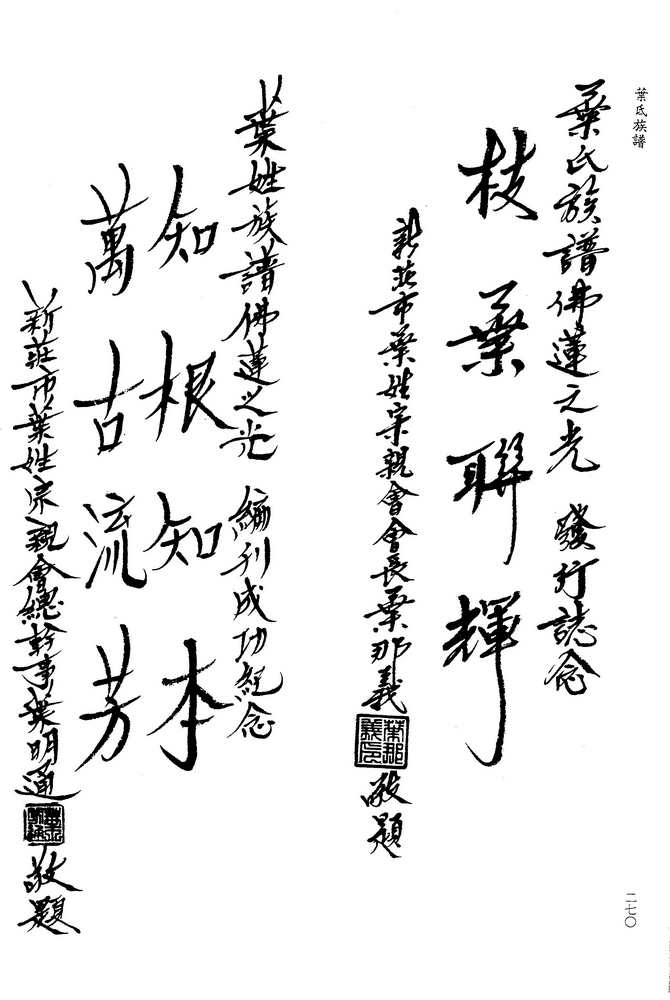 葉氏族譜
葉氏族譜佛蓮之光 發行誌念
枝葉聯輝
新莊市葉姓宗親會會長葉那義
葉那義印
敬題
葉姓族譜佛蓮之光 編刊成功紀念
知根知本
萬古流芳
新莊市葉姓宗親會總幹事葉明通
敬題
二七〇